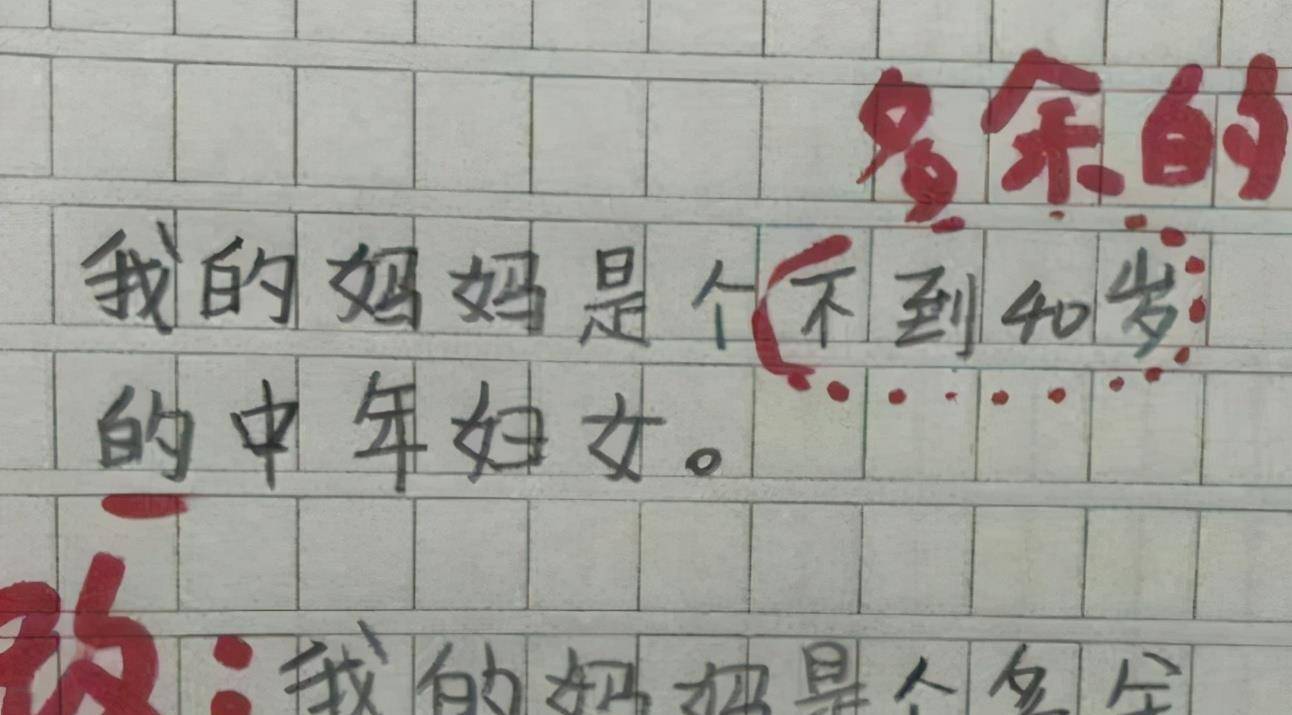 多余的
我的妈妈是个不到40岁
的中年妇女。
改：我的妈妈是个多余